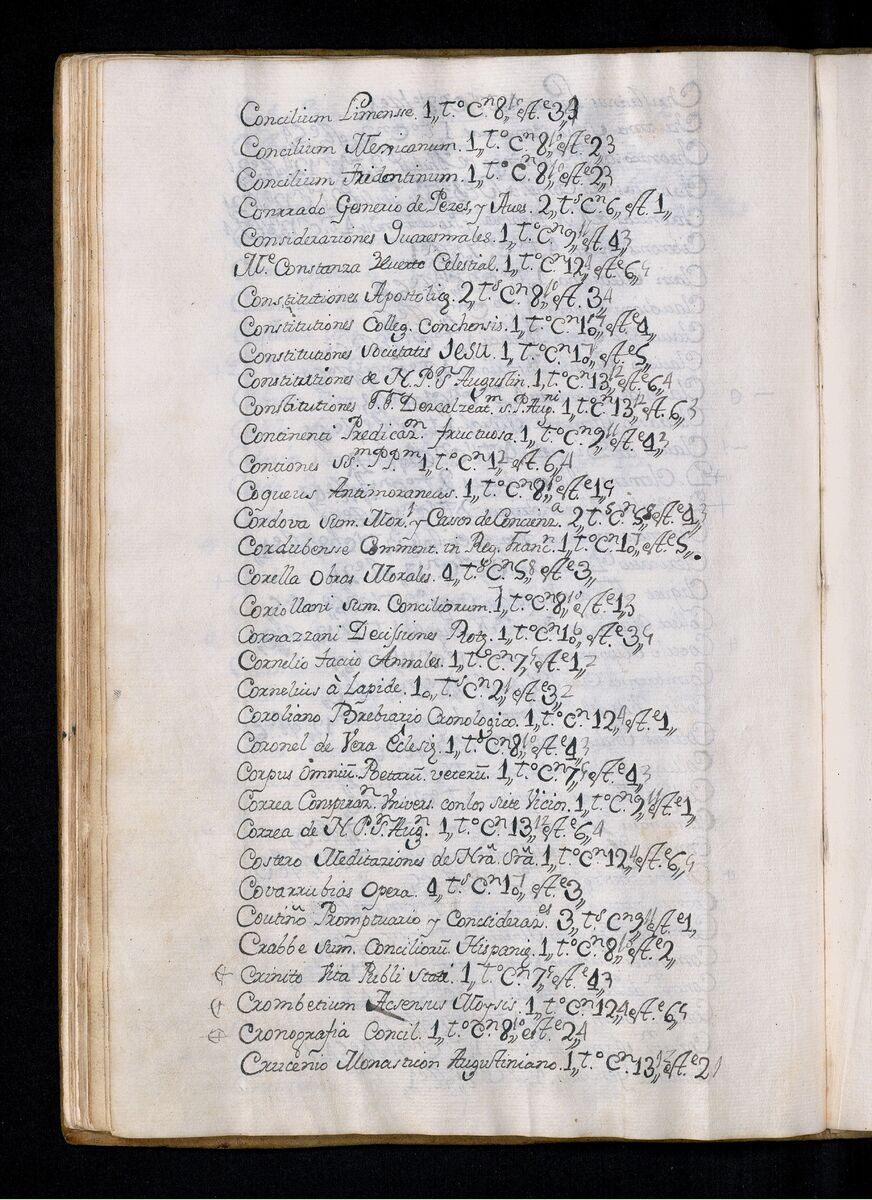 Concilium Limense. 1,, t.º C.n 8,, est.e 3,,
Concilium Mexicanum. 1,, t.º C.n 8,, est.e 2,, 3
Concilium tridentinum. 1,, t.º C.n 8,, est.e 2,, 3
Conrrado Gesnerio de Pezes, y Aves. 2,, t.s C.n 6,, est. 1,,
Consideraziones Quaresmales. 1,, t.º C.n 9,, est. 4,, 3
M.e Constanza Huerto Celestial. 1,, t.º C.n 12,, est.e 6,, 5
Constitutiones Apostolicę. 2,, t.s C.n 8,, est. 3,, 4
Constitutiones Colleg. Conchensis. 1,, t.º C.n 10,, est.e 4,,
Constitutiones Societatis Jesu. 1,, t.º C.n 10,, est.e 5,,
Constitutiones de N. P. S.n Augustin. 1,, t.º C.n 13,, est.e 6,, 4
Constitutiones F.F. Descalzeat.m s. P. Aug.ni 1,, t.º C.n 13,, est. 6,, 3
Continenti Predicaz.on fructuosa. 1,, t.º C.n 9,, est.e 4,, 3
Contiones SS.m PP.m 1,, t.º C.n 12,, est. 6,, 4
Coqueus Antimoraneus. 1,, t.º C.n 8,, est.e 1,, 5
Cordova Sum. Mor.l y Casos de Concienz.a 2,, t.s C.n 5,, est.e 4,, 3
Cordubensse Comment. in Reg. Franc.n 1,, t.º C.n 10,, est.e 5,,
Corella Obras Morales. 4,, t.s C.n 5,, est.e 3,,
Coriollani Sum. Conciliorum. 1,, t.º C.n 8,, est.e 1,, 3
Cornazzani Decissiones Rotę. 1,, t.º C.n 10,, est.e 3,, 5
Cornelio tacito Annales. 1,, t.º C.n 7,, est.e 1,, 2
Cornelius à Lapide. 10,, t.s C.n 2,, est.e 3,, 2
Coroliano Brebiario Cronologico. 1,, t.º C.n 12,, est.e 1,,
Coronel de Vera Eclesię. 1,, t.º C.n 8,, est.e 4,, 3
Corpus omniũ. Poetarũ. veterũ. 1,, t.º C.n 7,, est.e 4,, 3
Correa Conspiraz.n Univers. con los siete Vicios. 1,, t.º C.n 9,, est.e 1,,
Correa de N. P. S.n Aug.n 1,, t.º C.n 13,, est.e 6,, 4
Costero Meditaziones de Nrã. Srã. 1,, t.º C.n 12,, est.e 6,, 5
Covarrubias Opera. 4,, t.s C.n 10,, est.e 3,,
Coutiño Promptuario y Conscideraz.es 3,, t.s C.n 9,, est.e 1,,
Crabbe Sum. Conciliorũ. Hispanię. 1,, t.º C.n 8,, est.e 2,,
Crinito Vita Publi Stati. 1,, t.º C.n 7,, est.e 4,, 3
Crombetium Acsensus Moysis. 1,, t.º C.n 12,, est.e 6,, 5
Cronografia Concil. 1,, t.º C.n 8,, est.e 2,, 4
Cruceño Monasticon Augustiniano. 1,, t.º C.n 13,, est.e 2